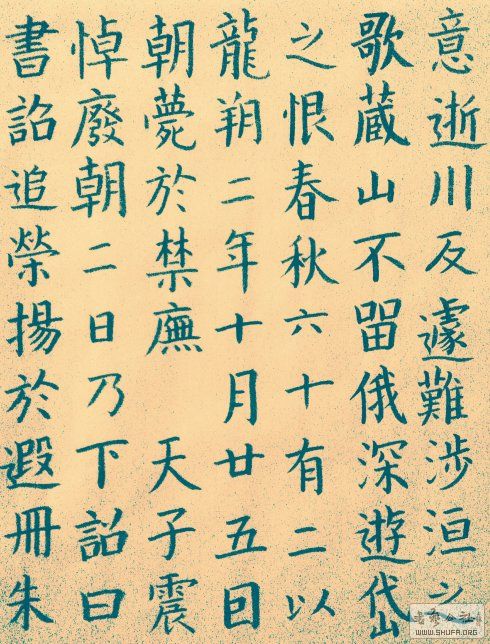 意逝川反遽難涉洹之
歌蔵山不留俄深遊岱
之恨春秋六十有二以
龍朔二年十月廿五日
朝薨於禁廡 天子震
悼廢朝二日乃下詔曰
書詔追榮揚於遐冊朱
WWW.SHUFA.ORG